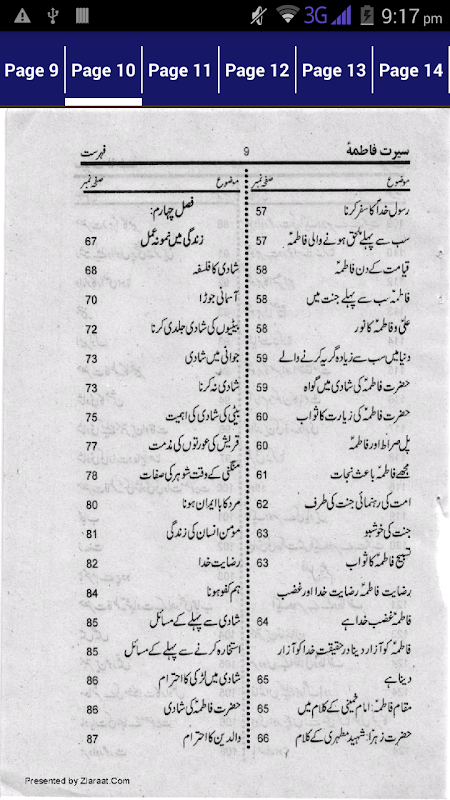 3G 9:17 pm
Page 9 Page 10 Page 11 Page 12 Page 13 Page 14
سیرت فاطمہؑ 9 فہرست
موضوع صفحہ نمبر
رسول خداؐ کا سفر کرنا 57
سب سے پہلے ملحق ہونے والی فاطمہؑ 57
قیامت کے دن فاطمہؑ 58
فاطمہؑ سب سے پہلے جنت میں 58
علیؑ و فاطمہؑ کا نور 58
دنیا میں سب سے زیادہ گریہ کرنے والے 59
حضرت فاطمہؑ کی شادی میں گواہ 59
حضرت فاطمہؑ کی زیارت کا ثواب 60
پل صراط اور فاطمہؑ 60
مجھے فاطمہؑ باعث نجات 61
امت کی رہنمائی جنت کی طرف 62
جنت کی خوشبو 63
تسبیح فاطمہؑ کا ثواب 63
رضایت فاطمہؑ رضایت خدا اور غضب
فاطمہؑ غضب خدا ہے 64
فاطمہؑ کو آزار دینا درحقیقت خدا کو آزار
دینا ہے 65
مقام فاطمہؑ: امام خمینیؒ کے کلام میں 65
حضرت زہراؑ: شہید مطہری کے کلام 66
موضوع صفحہ نمبر
فصل چہارم:
زندگی میں نمونہ عمل 67
شادی کا فلسفہ 68
آسمانی جوڑا 70
بیٹیوں کی شادی جلدی کرنا 72
جوانی میں شادی 73
شادی نہ کرنا 73
بیٹی کی شادی کی اہمیت 75
قریش کی عورتوں کی مذمت 77
منگنی کے وقت شوہر کی صفات 78
مرد کا باایمان ہونا 80
مومن انسان کی زندگی 81
رضایت خدا 82
ہم کفو ہونا 84
شادی سے پہلے کے مسائل 85
استخارہ کرنے سے پہلے کے مسائل 85
شادی میں لڑکی کا احترام 86
حضرت فاطمہؑ کی شادی 86
والدین کا احترام 87
Presented by Ziaraat.Com